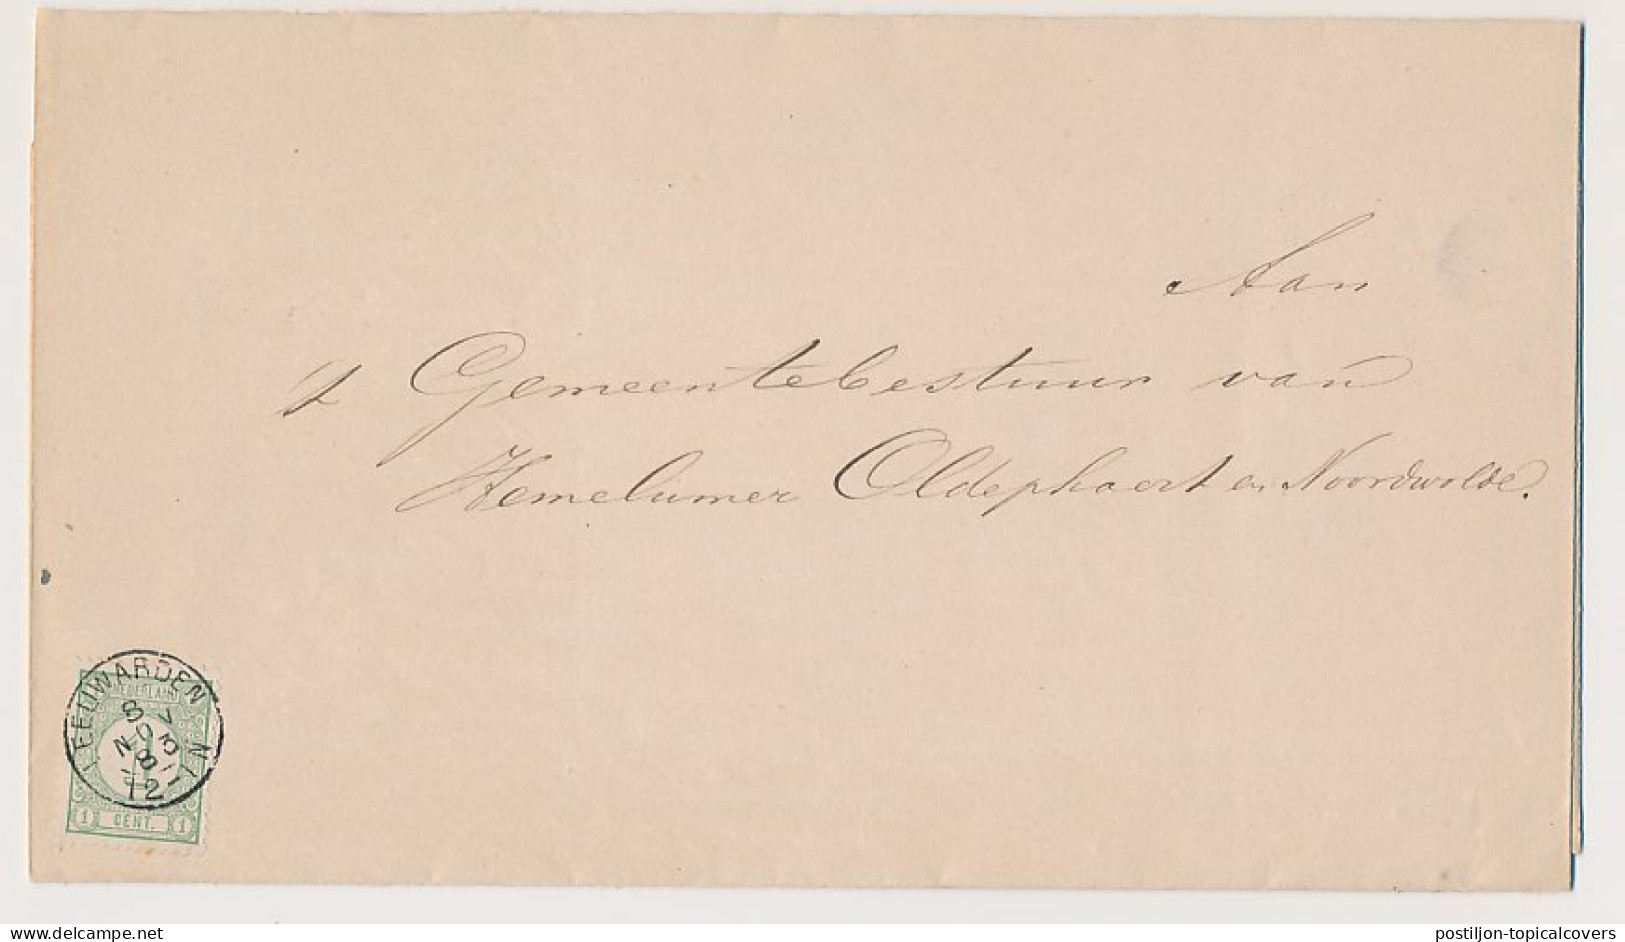 Aan
't Gemeentebestuur van
Hemelumer Oldephaert en Noordwolde.
LEEUWARDEN
NEDERLAND
8
NOV
12
1 CENT. 1
delcampe.net
postiljon-topicalcovers